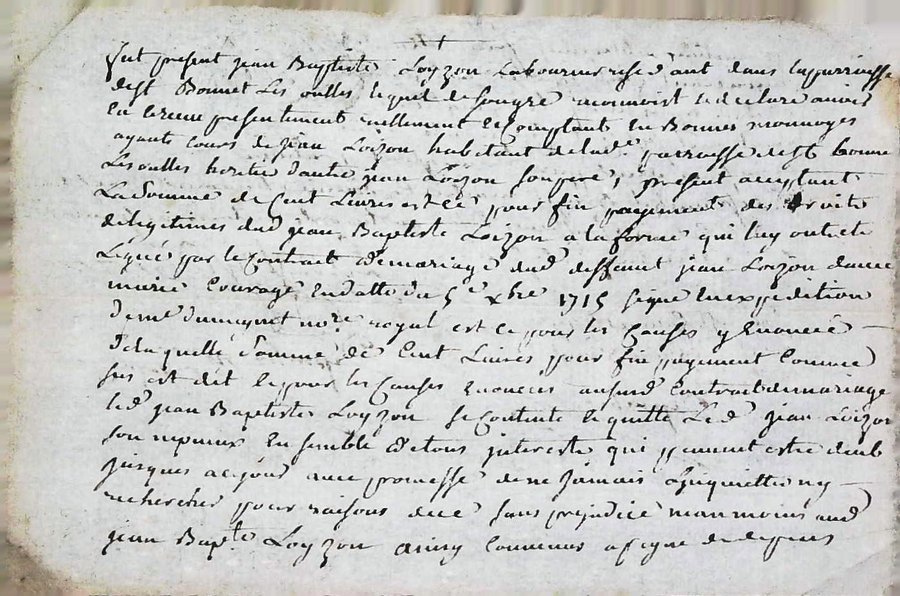 fut présent jean Baptiste Loyzon Laboureur residant dans la parroisse
de st Bonnet Les oulles lequel de son gré reconnoist et declare avoir
eu et receu presentement reellement et Comptant en Bonnes monnoyes
ayants cours de jean Loizon habitant de lad.e parroisse de st bonnet
Les oulles heritier d'autre jean Loizon son pere, présent acceptant
La Somme de Cent Livres et ce pour fin payement des droits
de legitimes dud jean Baptiste Loizon a la forme qui luy ont été
Légué par le Contrait de mariage dud deffunt jean Loizon d'avec
marie Courage En datte du 5e xbre 1715 signé En expedition
de me no.re royal et ce pour les Causes y Enoncée
De la quelle Somme de Cent Livres pour fin payement Comme
sus est dit et pour les Causes Enonceés ausud Contrait de mariage
led jean Baptiste Loyzon se Contente et quitte Le d jean Loizon
son nepveux En semble de tous interests qui peuvent estre deub
jusques a ce jour avec promesse de ne jamais Linquietter ny
rechercher pour raisons de ce sans prejudice neanmoins aud
jean Bap.te Loyzon ainsy Convenus